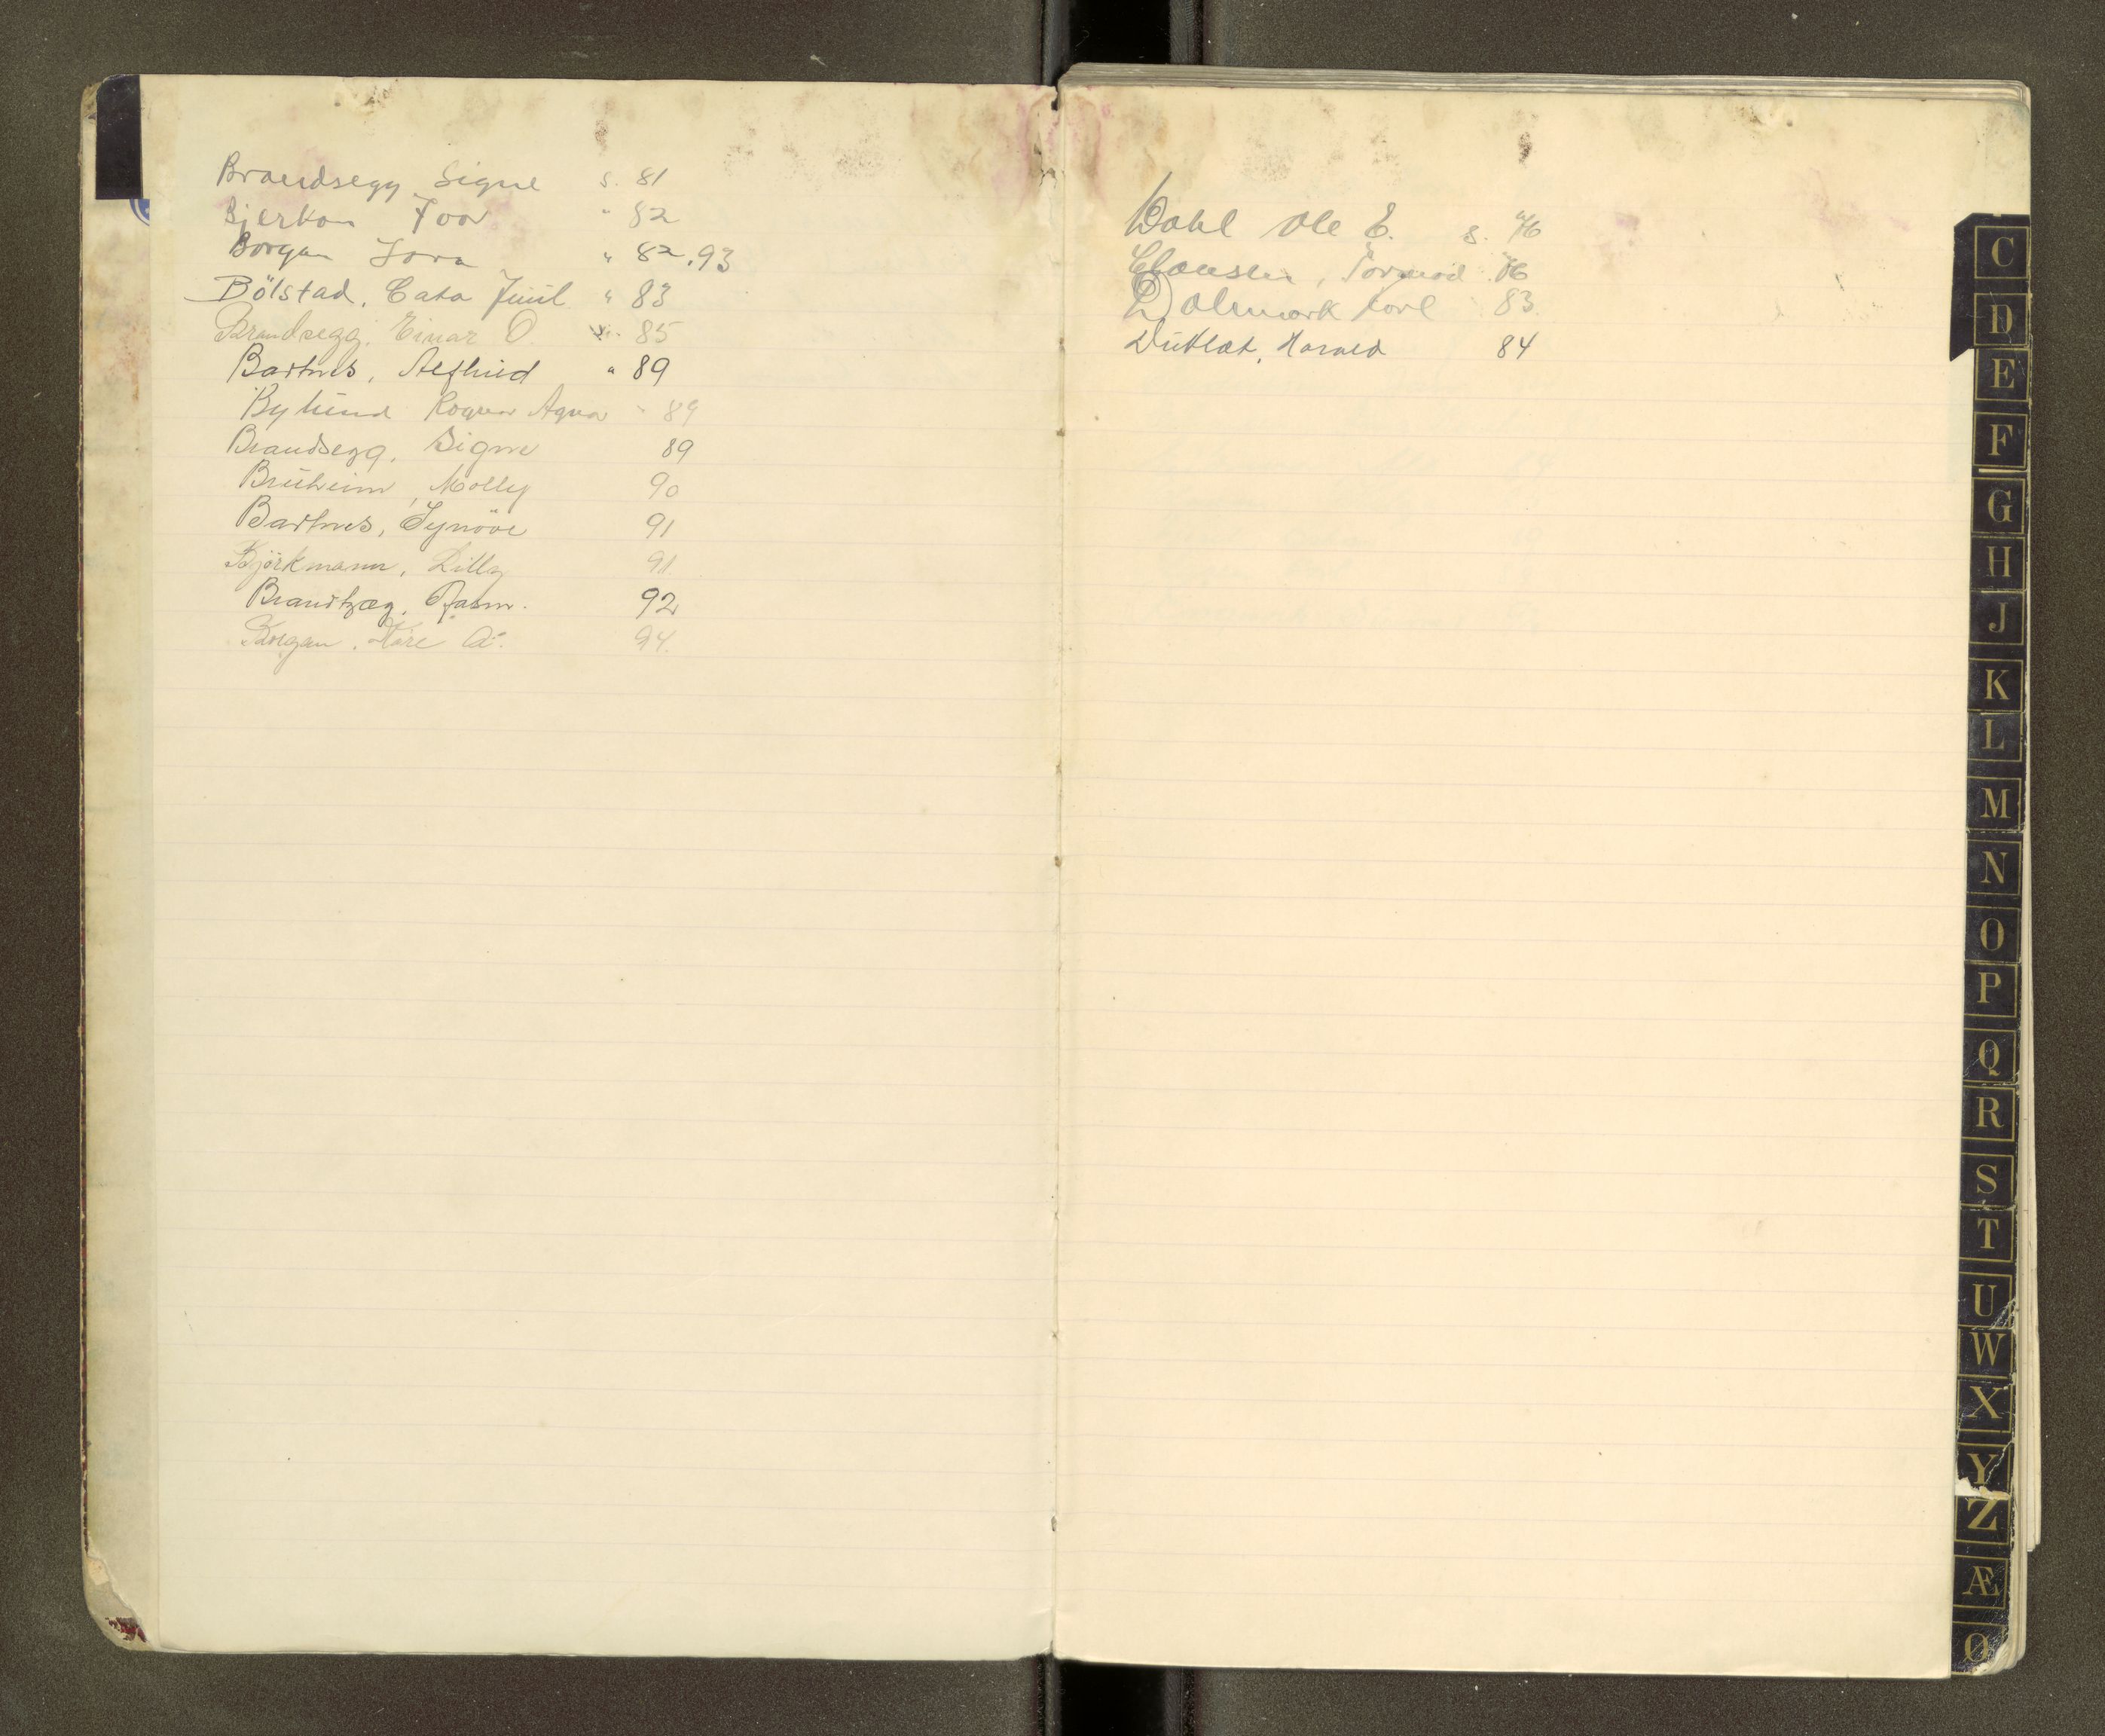 Brandsegg Signe s. 81
Bjerkan Joar " 82
Borgan Tora " 82.93
Bölstad, Cato Juul " 83
Brandsegg, Einar O. s. 85
Bartnes, Alfhild " 89
Bylund Ragnar Agnar " 89
Brandsegg, Signe 89
Bruheim, Molly 90
Bartnes, Synöve 91
Björkmann, Lilly 91
Brandtzæg, Rasm. 92
Borgan, Kåre A. 94.
Dahl Ole E. s. 76
Clausen, Tormod 76
Dalemark Karl 83
Harald 84
C
D
E
F
G
H
J
K
L
M
N
O
P
Q
R
S
T
U
W
X
Y
Z
Æ
Ø